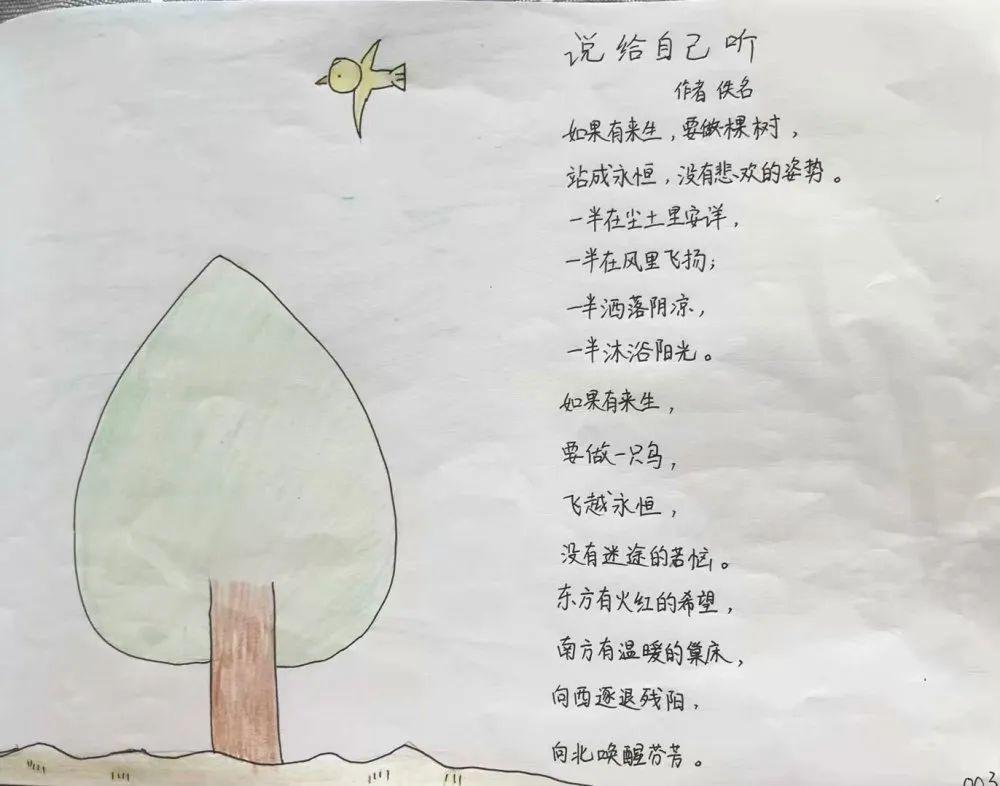 说给自己听
作者 佚名
如果有来生，要做棵树，
站成永恒，没有悲欢的姿势。
一半在尘土里安详，
一半在风里飞扬；
一半洒落阴凉，
一半沐浴阳光。
如果有来生，
要做一只鸟，
飞越永恒，
没有迷途的苦恼。
东方有火红的希望，
南方有温暖的巢床，
向西逐退残阳，
向北唤醒芬芳。
003